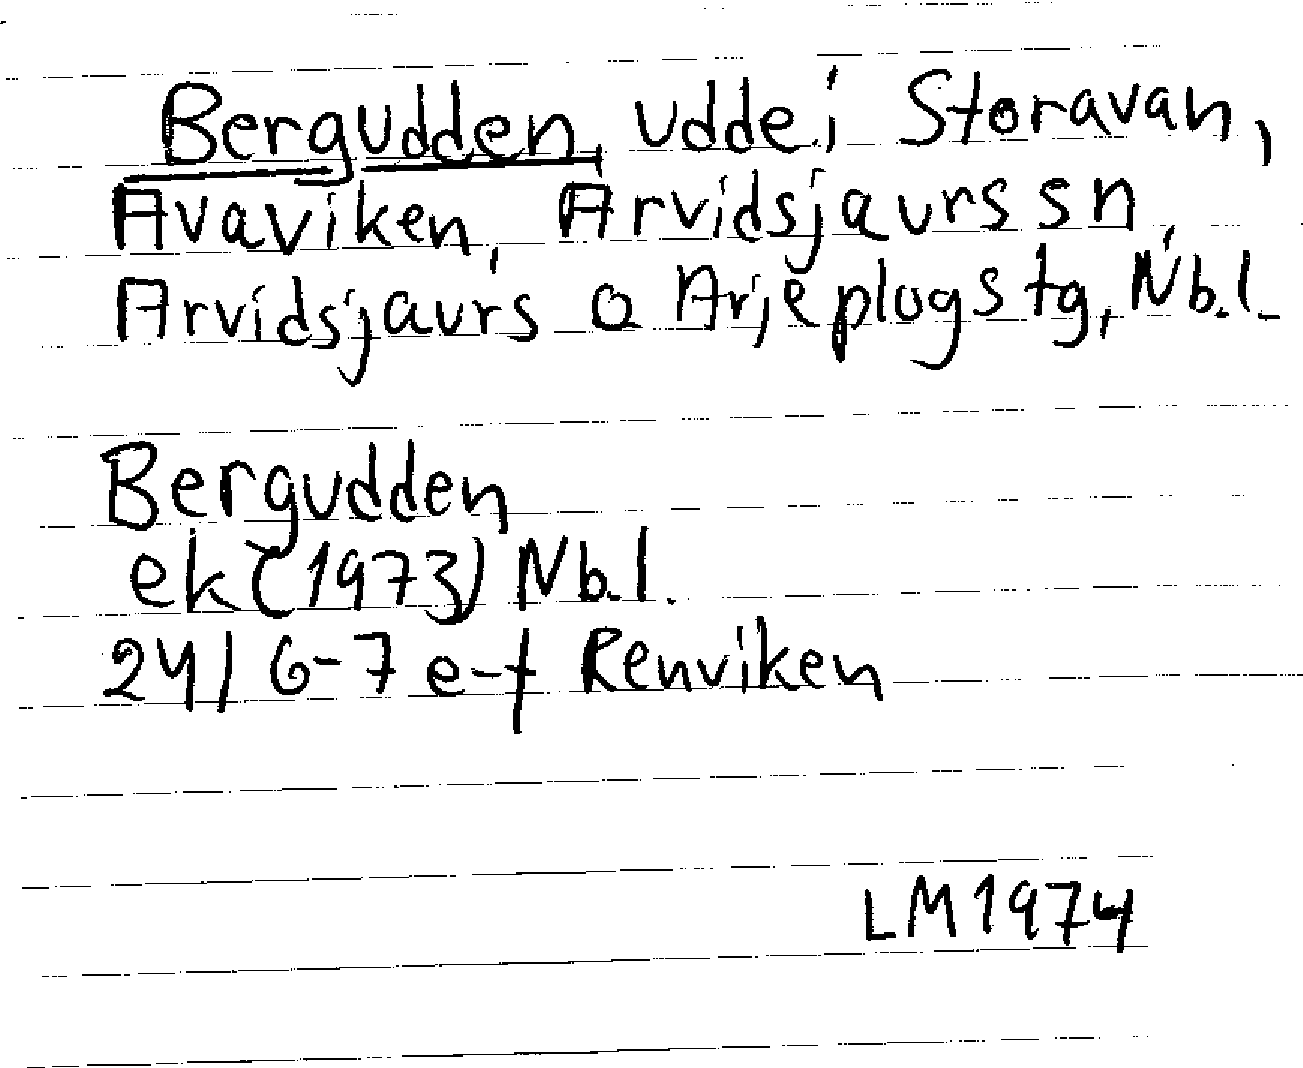 Bergudden, udde i Storavan,
Avaviken, Arvidsjaurs sn,
Arvidsjaurs o Arjeplogs tg, Nb.l.
Bergudden
ek (1973) Nb.l.
24I 6-7 e-f Renviken
LM 1974